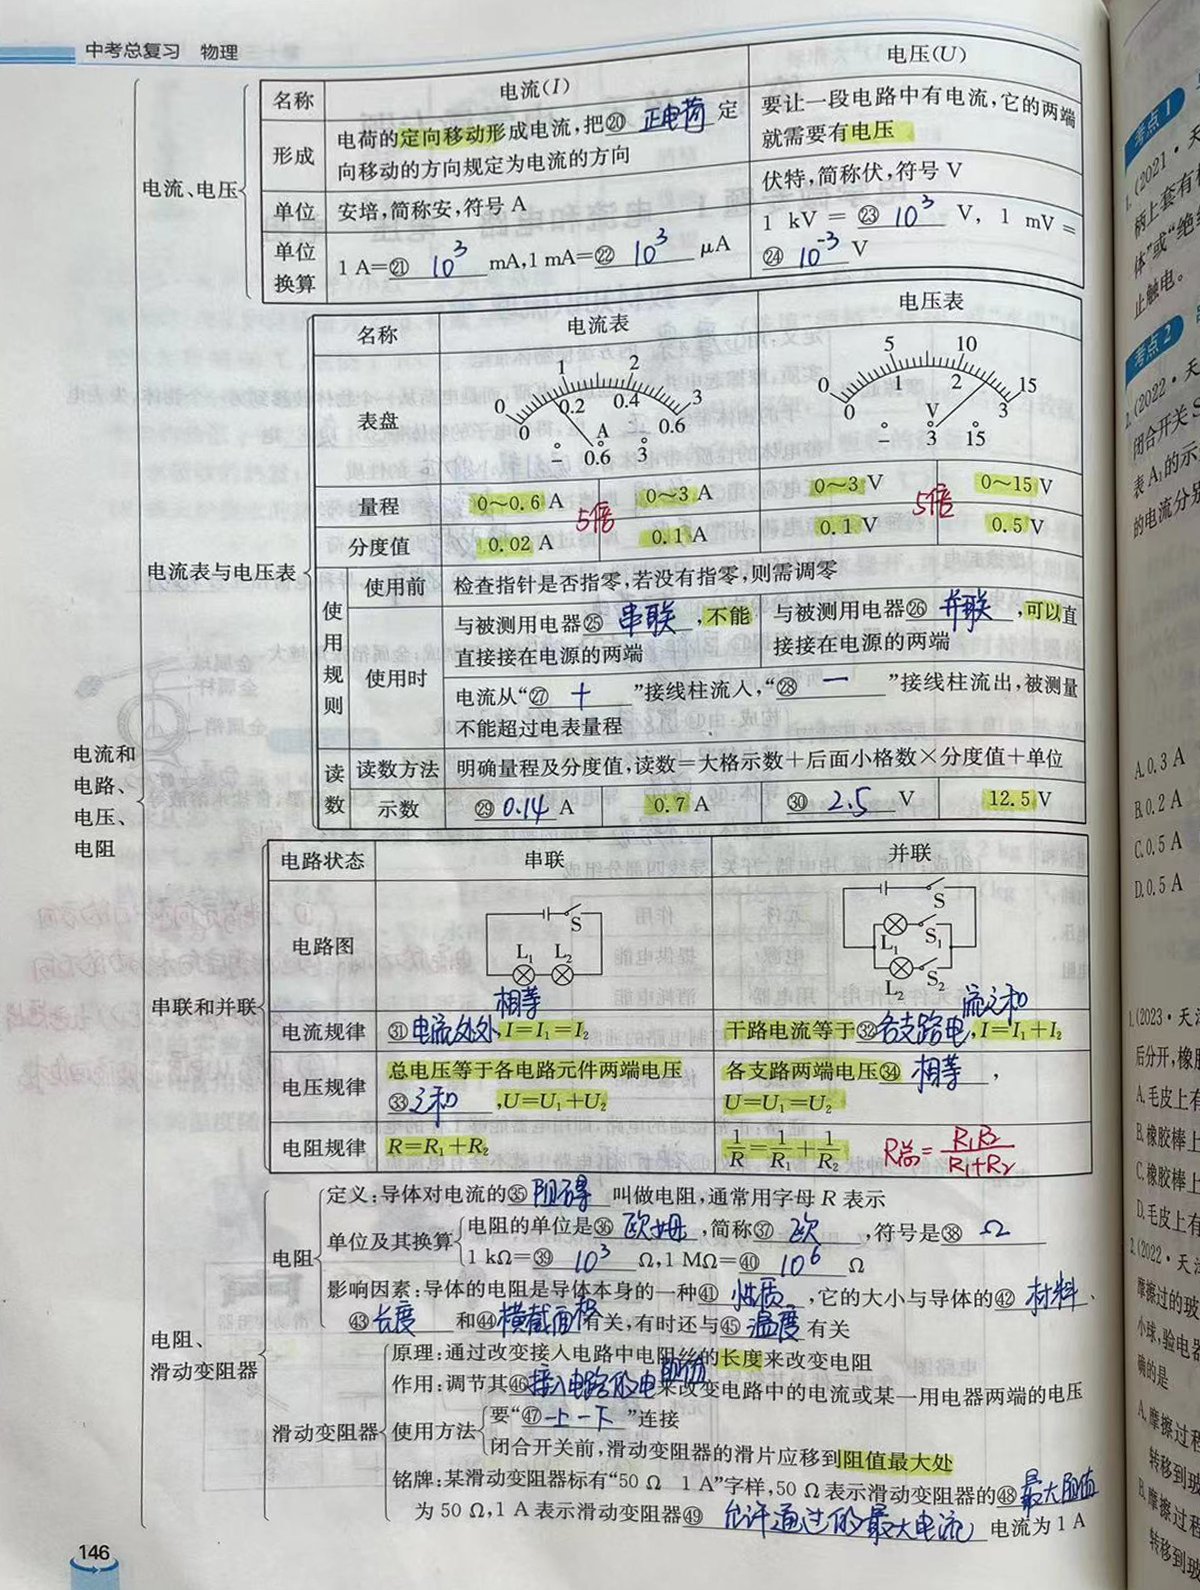 中考总复习 物理
名称 电流(I) 电压(U)
形成 电荷的定向移动形成电流,把⑳ 正电荷 定向移动的方向规定为电流的方向
要让一段电路中有电流,它的两端就需要有电压
单位 安培,简称安,符号 A 伏特,简称伏,符号 V
单位换算 1 A=㉑ 10³ mA,1 mA=㉒ 10³ μA
1 kV = ㉓ 10³ V, 1 mV = ㉔ 10⁻³ V
电流、电压
名称 电流表 电压表
表盘
0 1 2 3
0 0.2 0.4 0.6
A
− 0.6 3
0 5 10 15
0 1 2 3
V
− 3 15
量程 0~0.6 A 0~3 A 0~3 V 0~15 V
5倍 5倍
分度值 0.02 A 0.1 A 0.1 V 0.5 V
电流表与电压表
使用规则
使用前 检查指针是否指零,若没有指零,则需调零
使用时 与被测用电器㉕ 串联 ,不能直接接在电源的两端
与被测用电器㉖ 并联 ,可以直接接在电源的两端
电流从“㉗ + ”接线柱流入,“㉘ − ”接线柱流出,被测量不能超过电表量程
读数
读数方法 明确量程及分度值,读数=大格示数+后面小格数×分度值+单位
示数 ㉙ 0.14 A 0.7 A ㉚ 2.5 V 12.5 V
电流和电路、电压、电阻
电路状态 串联 并联
电路图
S
L₁ L₂
S
L₁ S₁
L₂ S₂
串联和并联
电流规律 ㉛ 电流处处相等,I=I₁=I₂ 干路电流等于㉜ 各支路电流之和,I=I₁+I₂
电压规律 总电压等于各电路元件两端电压㉝ 之和 ,U=U₁+U₂
各支路两端电压㉞ 相等 ,U=U₁=U₂
电阻规律 R=R₁+R₂ 1/R=1/R₁+1/R₂ R总=R₁R₂/R₁+R₂
电阻、滑动变阻器
电阻
定义:导体对电流的㉟ 阻碍 叫做电阻,通常用字母 R 表示
单位及其换算
电阻的单位是㊱ 欧姆 ,简称㊲ 欧 ,符号是㊳ Ω
1 kΩ=㊴ 10³ Ω,1 MΩ=㊵ 10⁶ Ω
影响因素:导体的电阻是导体本身的一种㊶ 性质 ,它的大小与导体的㊷ 材料 、
㊸ 长度 和㊹ 横截面积 有关,有时还与㊺ 温度 有关
滑动变阻器
原理:通过改变接入电路中电阻丝的长度来改变电阻
作用:调节其㊻ 接入电路的电阻值 来改变电路中的电流或某一用电器两端的电压
使用方法
要“㊼ 一上一下 ”连接
闭合开关前,滑动变阻器的滑片应移到阻值最大处
铭牌:某滑动变阻器标有“50 Ω 1 A”字样,50 Ω 表示滑动变阻器的㊽ 最大阻值
为 50 Ω,1 A 表示滑动变阻器㊾ 允许通过的最大电流 电流为 1 A
146
考点1
(2021·天
1.
柄上套有
体”或“绝
止触电。
考点2
2.(2022·天
闭合开关S
表 A₁的示
的电流分别
A.0.3 A
B.0.2 A
C.0.5 A
D.0.5 A
1.(2023·天
后分开,橡胶
A.毛皮上有
B.橡胶棒上
C.橡胶棒上
D.毛皮上有
2.(2022·天
摩擦过的玻
小球,验电器
确的是
A.摩擦过程
转移到玻
B.摩擦过程
转移到玻